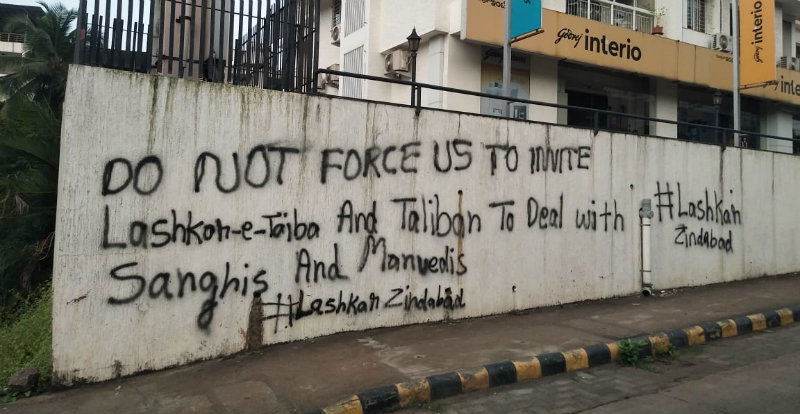 Godrej interio
Godrej interio
DO NOT FORCE US TO INVITE
Lashkar-e-Taiba And Taliban To Deal with
Sanghis And Manvedis
#Lashkar Zindabad
#Lashkar
Zindabad